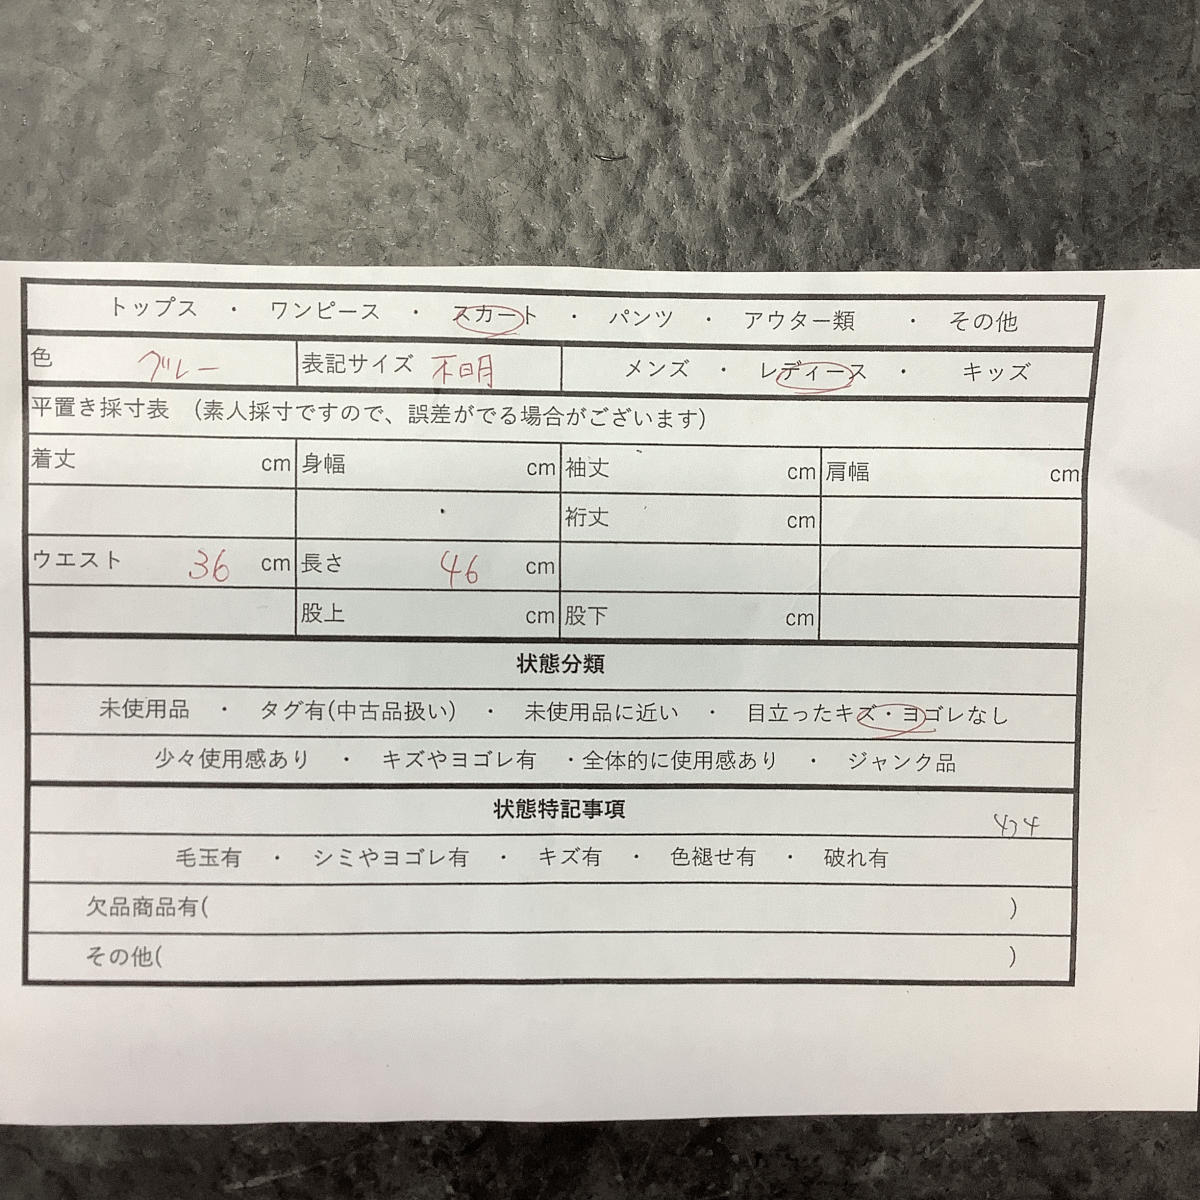 トップス ・ ワンピース ・ スカート ・ パンツ ・ アウター類 ・ その他
色 グレー 表記サイズ 不明 メンズ ・ レディース ・ キッズ
平置き採寸表 (素人採寸ですので、誤差がでる場合がございます)
着丈 cm 身幅 cm 袖丈 cm 肩幅 cm
裄丈 cm
ウエスト 36 cm 長さ 46 cm
股上 cm 股下 cm
状態分類
未使用品 ・ タグ有(中古品扱い) ・ 未使用品に近い ・ 目立ったキズ・ヨゴレなし
少々使用感あり ・ キズやヨゴレ有 ・全体的に使用感あり ・ ジャンク品
状態特記事項
毛玉有 ・ シミやヨゴレ有 ・ キズ有 ・ 色褪せ有 ・ 破れ有
欠品商品有( )
その他( )